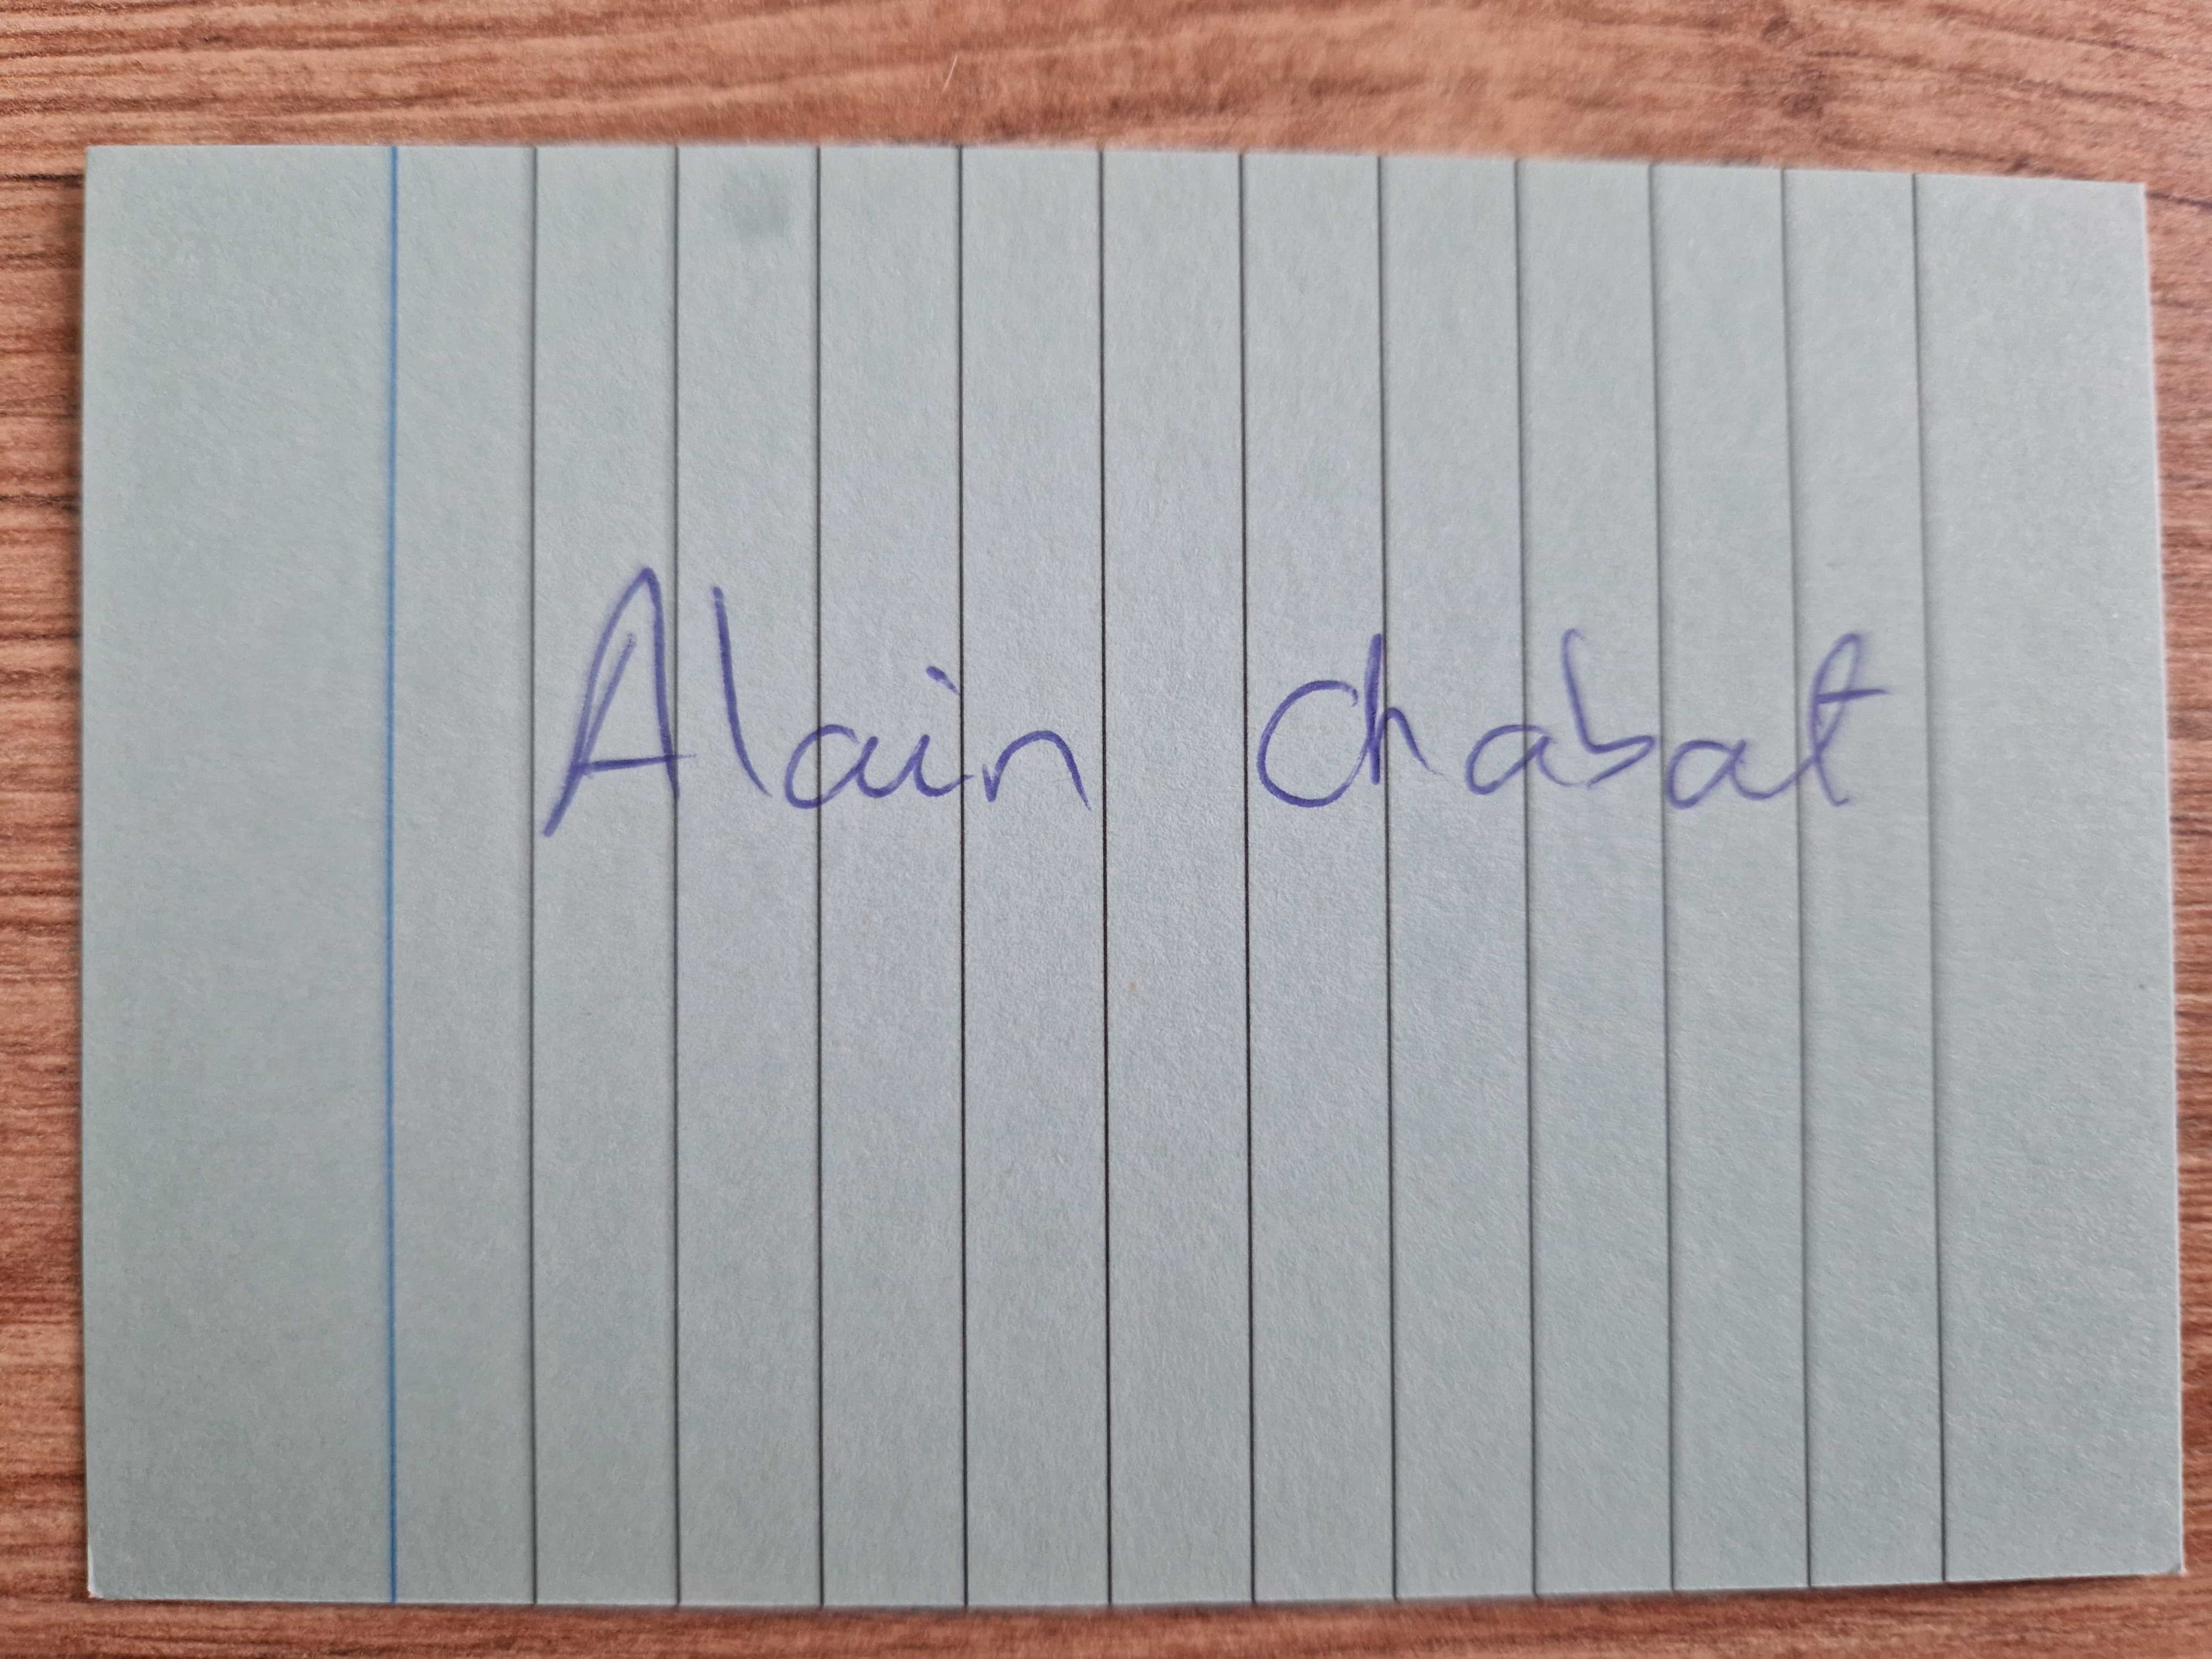 Alain chabat